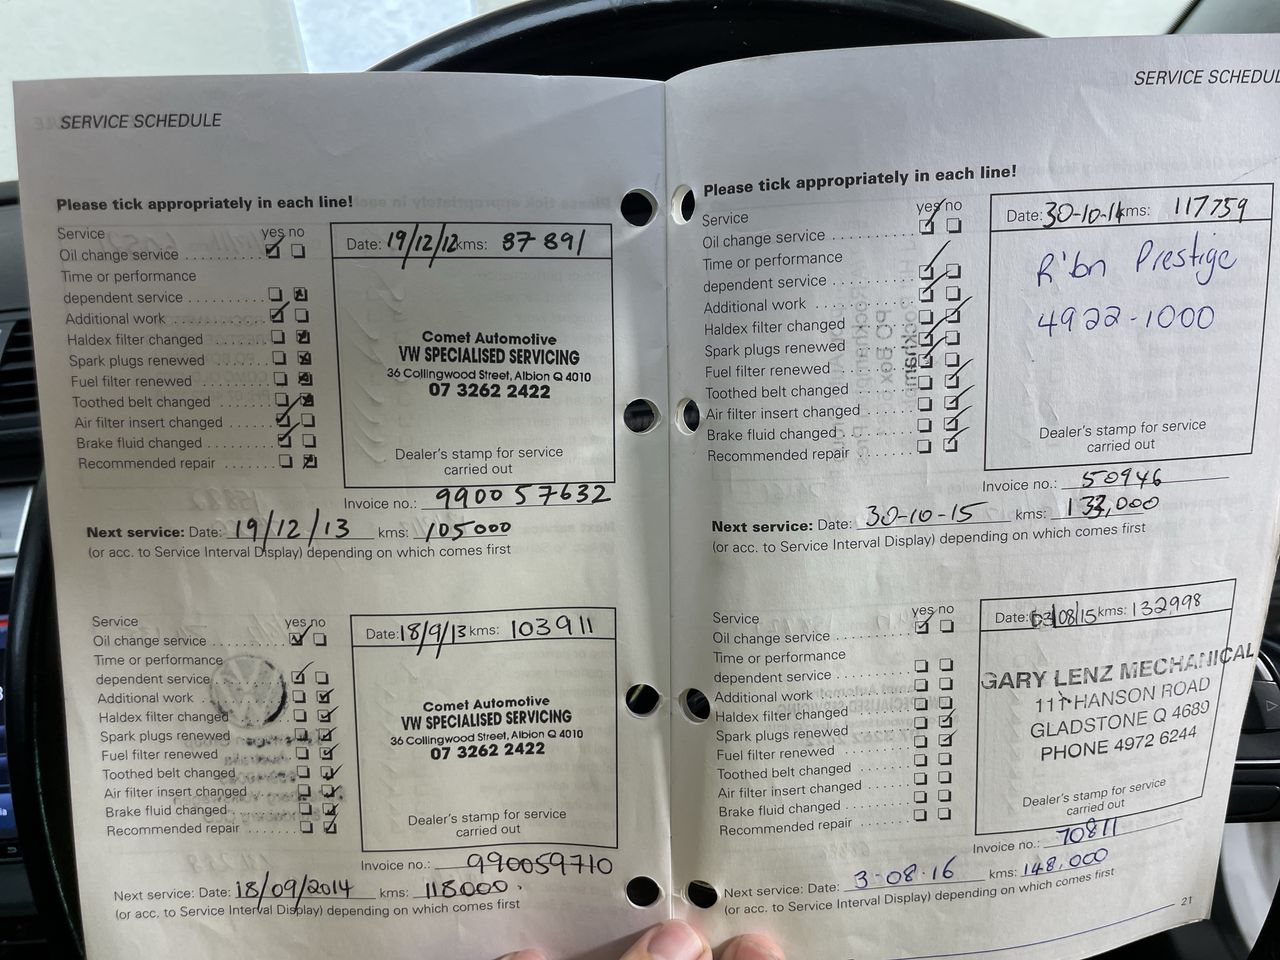 SERVICE SCHEDULE
Please tick appropriately in each line!
Service
yes no
Oil change service
Time or performance
dependent service
Additional work
Haldex filter changed
Spark plugs renewed
Fuel filter renewed
Toothed belt changed
Air filter insert changed
Brake fluid changed
Recommended repair
Date: 19/12/12 kms: 87891
Comet Automotive
VW SPECIALISED SERVICING
36 Collingwood Street, Albion Q 4010
07 3262 2422
Dealer's stamp for service
carried out
Invoice no.: 990057632
Next service: Date: 19/12/13 kms: 105000
(or acc. to Service Interval Display) depending on which comes first
Service
yes no
Oil change service
Time or performance
dependent service
Additional work
Haldex filter changed
Spark plugs renewed
Fuel filter renewed
Toothed belt changed
Air filter insert changed
Brake fluid changed
Recommended repair
Date: 18/9/13 kms: 103911
Comet Automotive
VW SPECIALISED SERVICING
36 Collingwood Street, Albion Q 4010
07 3262 2422
Dealer's stamp for service
carried out
Invoice no.: 990059710
Next service: Date: 18/09/2014 kms: 118000.
(or acc. to Service Interval Display) depending on which comes first
SERVICE SCHEDUL
Please tick appropriately in each line!
Service
yes no
Oil change service
Time or performance
dependent service
Additional work
Haldex filter changed
Spark plugs renewed
Fuel filter renewed
Toothed belt changed
Air filter insert changed
Brake fluid changed
Recommended repair
Date: 30-10-14 kms: 117759
R'bn Prestige
4922-1000
Dealer's stamp for service
carried out
Invoice no.: 50946
Next service: Date: 30-10-15 kms: 133,000
(or acc. to Service Interval Display) depending on which comes first
Service
yes no
Oil change service
Time or performance
dependent service
Additional work
Haldex filter changed
Spark plugs renewed
Fuel filter renewed
Toothed belt changed
Air filter insert changed
Brake fluid changed
Recommended repair
Date: 03/08/15 kms: 132998
GARY LENZ MECHANICAL
111 HANSON ROAD
GLADSTONE Q 4689
PHONE 4972 6244
Dealer's stamp for service
carried out
Invoice no.: 70811
Next service: Date: 3-08-16 kms: 148,000
(or acc. to Service Interval Display) depending on which comes first
21